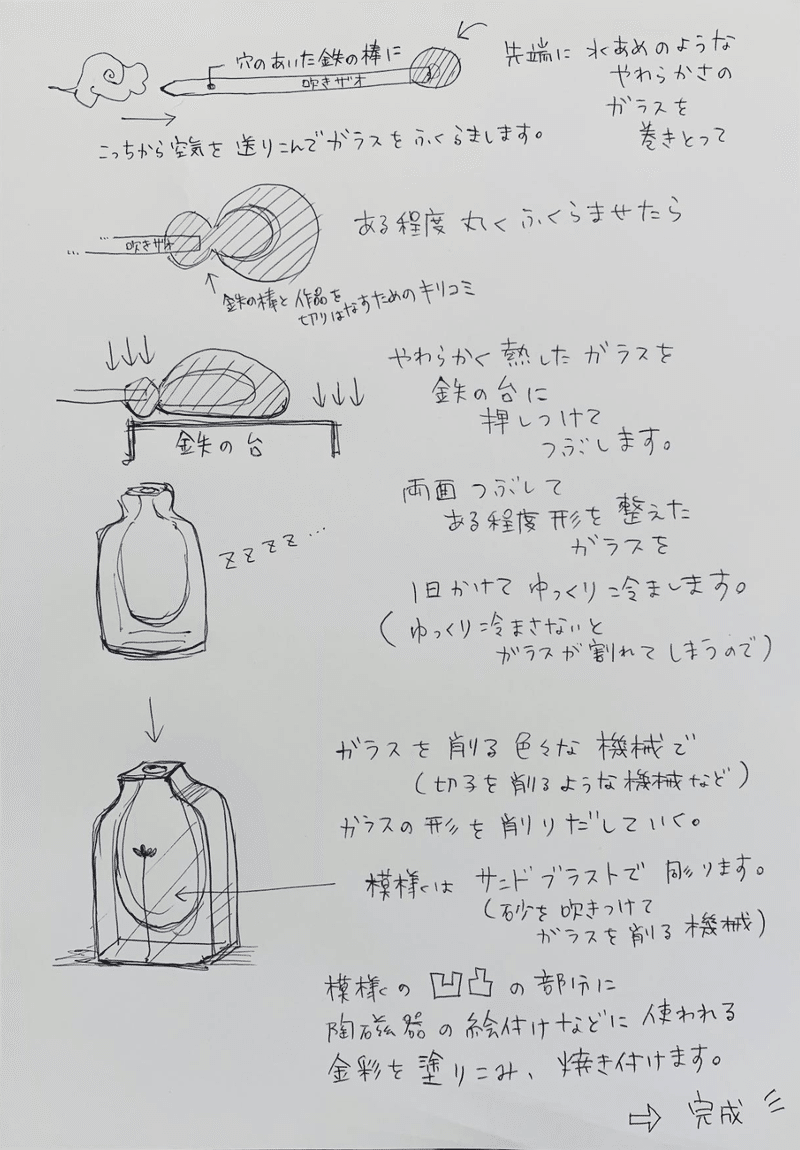 穴のあいた鉄の棒に
吹きザオ
先端に 水あめのような
やわらかさの
ガラスを
巻きとって
こっちから空気を送りこんでガラスをふくらまします。
ある程度 丸く ふくらませたら
吹きザオ
鉄の棒と作品を
切りはなすためのキリコミ
やわらかく 熱した ガラスを
鉄の台に
押しつけて
つぶします。
鉄の台
両面 つぶして
ある程度 形を 整えた
ガラスを
zzzz...
1日かけて ゆっくり 冷まします。
(ゆっくり冷まさないと
ガラスが 割れて しまうので)
ガラスを 削る 色々な 機械で
(切子を削るような機械など)
ガラスの 形を 削りだしていく。
模様は サンドブラストで 彫ります。
(砂を吹きつけて
ガラスを削る 機械)
模様の 凹凸 の 部分に
陶磁器の絵付けなどに 使われる
金彩を 塗りこみ、焼き付けます。
⇨ 完成